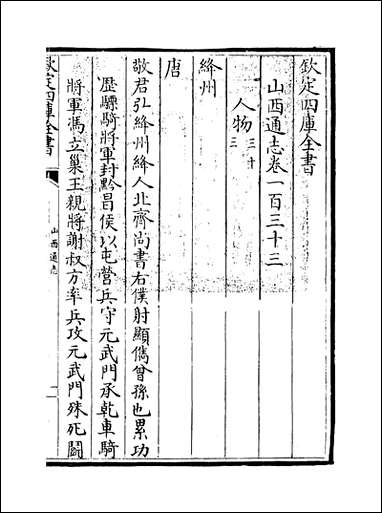 欽定四庫全書
山西通志卷一百三十三
人物三十三
絳州
唐
敬君弘絳州絳人北齊尚書右僕射顯儁曾孫也累功
歷驃騎將軍封黔昌侯以屯營兵守元武門承乾車騎
將軍馮立巢王親將謝叔方率兵攻元武門殊死鬬
欽定四庫全書
山西通志